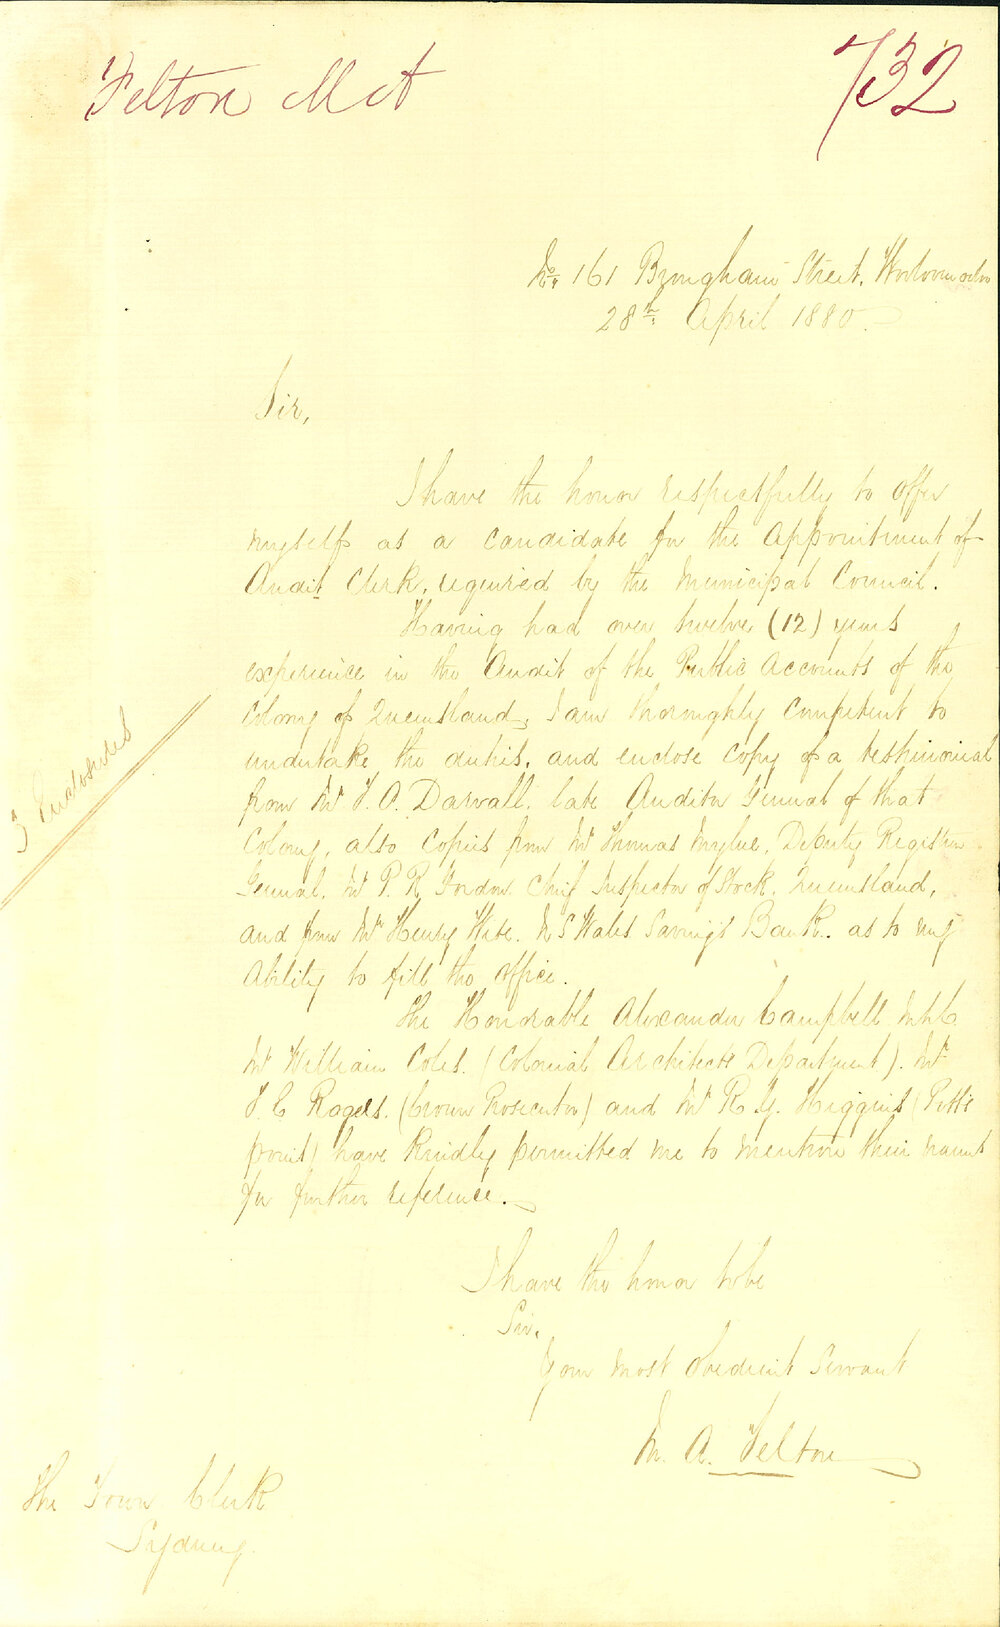 Felton M A
732
No. 161 Brougham Street, Woolloomooloo
28th April 1880.
Sir,
I have the honor respectfully to offer
myself as a candidate for the appointment of
Audit Clerk, required by the Municipal Council.
Having had over twelve (12) years
experience in the Audit of the Public Accounts of the
Colony of Queensland, I am thoroughly competent to
undertake the duties, and enclose copy of a testimonial
from Mr F. O. Darvall, late Auditor General of that
Colony, also copies from Mr Thomas Mylne, Deputy Registrar
General, Mr P. R. Gordon Chief Inspector of Stock, Queensland,
and from Mr Henry N S Wales Savings Bank. as to my
ability to fill the office.
The Honorable Alexander Campbell MLC
Mr William Coles. (Colonial Architects Department). Mr
F. C Rogers. (Crown Prosecutor) and Mr R. G. Higgins (Potts
point) have kindly permitted me to mention their names
for further reference.
I have the honor to be
Sir,
Your most obedient Servant
M. A. Felton
The Town Clerk
Sydney.
3 Enclosures